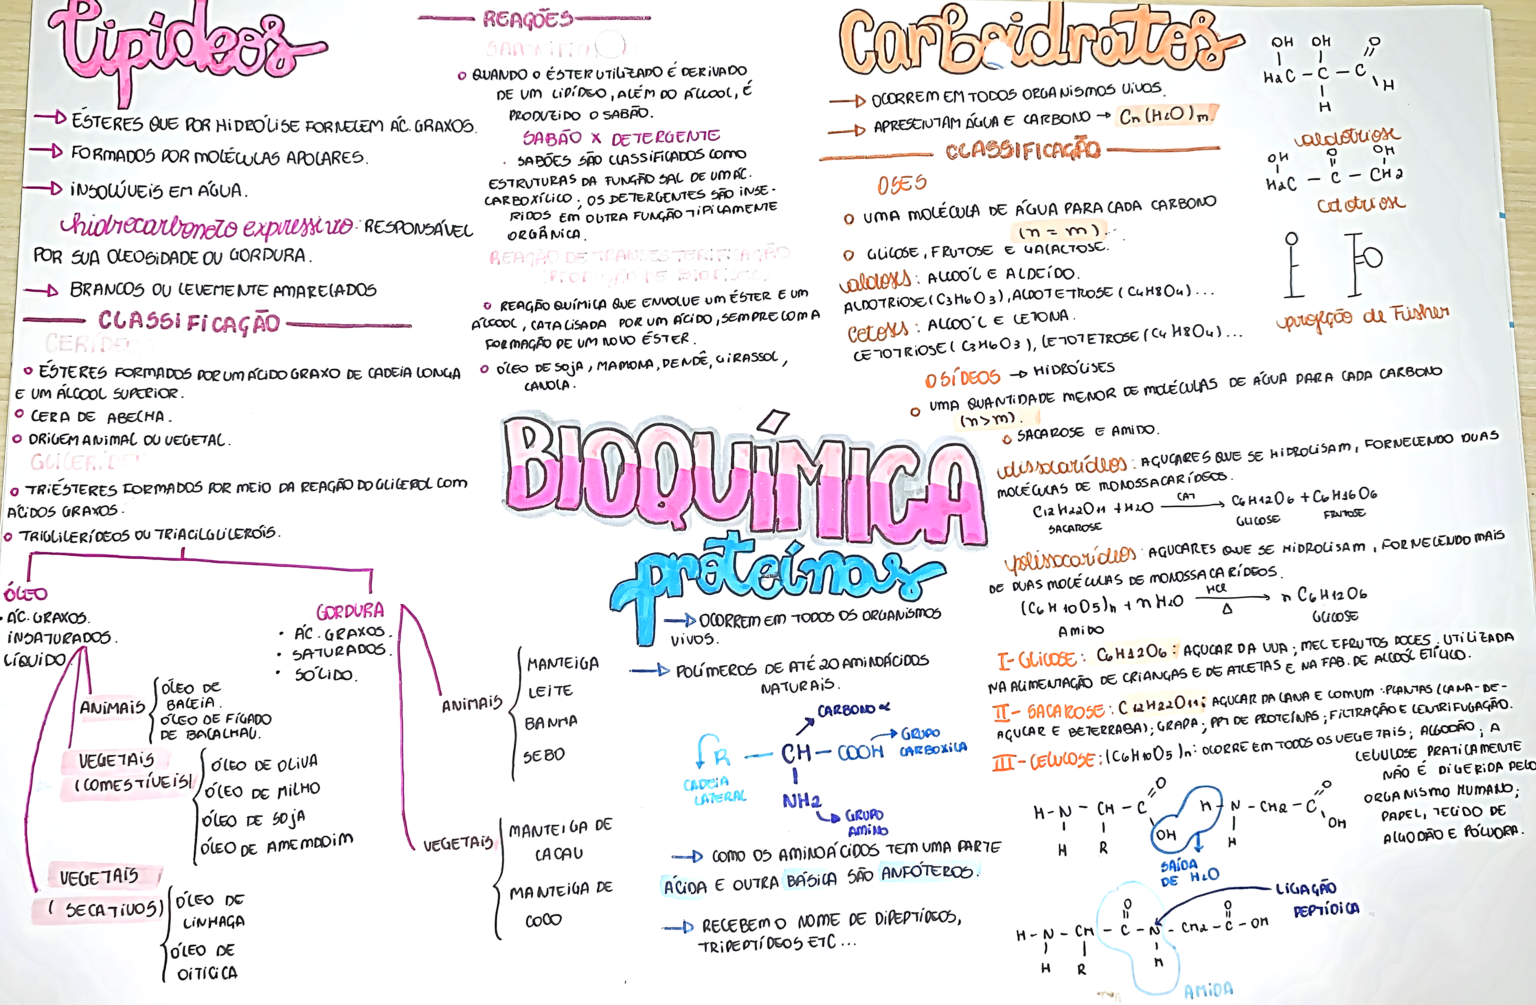 Lipídeos
→ ÉSTERES QUE POR HIDRÓLISE FORNECEM ÁC. GRAXOS.
→ FORMADOS POR MOLÉCULAS APOLARES.
→ INSOLÚVEIS EM ÁGUA.
hidrocarboneto expressivo: RESPONSÁVEL
POR SUA OLEOSIDADE OU GORDURA.
→ BRANCOS OU LEVEMENTE AMARELADOS
CLASSIFICAÇÃO
CERÍDEOS
o ÉSTERES FORMADOS POR UM ÁCIDO GRAXO DE CADEIA LONGA
E UM ÁLCOOL SUPERIOR.
o CERA DE ABELHA.
o ORIGEM ANIMAL OU VEGETAL.
GLICERÍDEOS
o TRIÉSTERES FORMADOS POR MEIO DA REAÇÃO DO GLICEROL COM
ÁCIDOS GRAXOS.
o TRIGLICERÍDEOS OU TRIACILGLICERÓIS.
ÓLEO
• ÁC. GRAXOS.
INSATURADOS.
LÍQUIDO
ANIMAIS
ÓLEO DE
BALEIA.
ÓLEO DE FÍGADO
DE BACALHAU.
VEGETAIS
(COMESTÍVEIS)
ÓLEO DE OLIVA
ÓLEO DE MILHO
ÓLEO DE SOJA
ÓLEO DE AMEMDOIM
VEGETAIS
(SECATIVOS)
ÓLEO DE
LINHAÇA
ÓLEO DE
OITICICA
GORDURA
• ÁC. GRAXOS.
• SATURADOS.
• SÓLIDO.
ANIMAIS
MANTEIGA
LEITE
BANHA
SEBO
VEGETAIS
MANTEIGA DE
CACAU
MANTEIGA DE
COCO
REAÇÕES
o QUANDO O ÉSTER UTILIZADO É DERIVADO
DE UM LIPÍDEO, ALÉM DO ÁLCOOL, É
PRODUZIDO O SABÃO.
SABÃO X DETERGENTE
. SABÕES SÃO CLASSIFICADOS COMO
ESTRUTURAS DA FUNÇÃO SAL DE UM ÁC.
CARBOXÍLICO; OS DETERGENTES SÃO INSE-
RIDOS EM OUTRA FUNÇÃO TIPICAMENTE
ORGÂNICA.
REAÇÃO DE TRANSESTERIFICAÇÃO
(PRODUÇÃO DE BIODIESEL)
o REAÇÃO QUÍMICA QUE ENVOLVE UM ÉSTER E UM
ÁLCOOL, CATALISADA POR UM ÁCIDO, SEMPRE COM A
FORMAÇÃO DE UM NOVO ÉSTER.
o ÓLEO DE SOJA, MAMONA, DENDÊ, GIRASSOL,
CANOLA.
BIOQUÍMICA
proteínas
→ OCORREM EM TODOS OS ORGANISMOS
VIVOS.
→ POLÍMEROS DE ATÉ 20 AMINOÁCIDOS
NATURAIS.
CARBONO α
R — CH — COOH → GRUPO
CARBOXILA
CADEIA
LATERAL
NH2
GRUPO
AMINO
→ COMO OS AMINOÁCIDOS TEM UMA PARTE
ÁCIDA E OUTRA BÁSICA SÃO ANFÓTEROS.
→ RECEBEM O NOME DE DIPEPTÍDEOS,
TRIPEPTÍDEOS ETC...
Carboidratos
→ OCORREM EM TODOS ORGANISMOS VIVOS.
→ APRESENTAM ÁGUA E CARBONO → Cn(H2O)m.
CLASSIFICAÇÃO
OSES
o UMA MOLÉCULA DE ÁGUA PARA CADA CARBONO
(n = m).
o GLICOSE, FRUTOSE E GALACTOSE.
aldoses: ÁLCOOL E ALDEÍDO.
ALDOTRIOSE (C3H6O3), ALDOTETROSE (C4H8O4)...
cetoses: ÁLCOOL E CETONA.
CETOTRIOSE (C3H6O3), CETOTETROSE (C4H8O4)...
OSÍDEOS → HIDRÓLISES
o UMA QUANTIDADE MENOR DE MOLÉCULAS DE ÁGUA PARA CADA CARBONO
(n>m).
o SACAROSE E AMIDO.
dissacarídeos: AÇUCARES QUE SE HIDROLISAM, FORNECENDO DUAS
MOLÉCULAS DE MONOSSACARÍDEOS.
C12H22O11 + H2O —CAT→ C6H12O6 + C6H16O6
SACAROSE GLICOSE FRUTOSE
polissacarídeos: AÇUCARES QUE SE HIDROLISAM, FORNECENDO MAIS
DE DUAS MOLÉCULAS DE MONOSSACARÍDEOS.
(C6H10O5)n + nH2O —HCl/Δ→ n C6H12O6
AMIDO GLICOSE
I- GLICOSE: C6H12O6: AÇUCAR DA UVA; MEL E FRUTOS DOCES. UTILIZADA
NA ALIMENTAÇÃO DE CRIANÇAS E DE ATLETAS E NA FAB. DE ÁLCOOL ETÍLICO.
II- SACAROSE: C12H22O11: AÇUCAR DA CANA E COMUM: PLANTAS (CANA-DE-
AÇUCAR E BETERRABA); GRAPA; PPT DE PROTEÍNAS; FILTRAÇÃO E CENTRIFUGAÇÃO.
III- CELULOSE: (C6H10O5)n: OCORRE EM TODOS OS VEGETAIS; ALGODÃO; A
CELULOSE PRATICAMENTE
NÃO É DIGERIDA PELO
ORGANISMO HUMANO;
PAPEL, TECIDO DE
ALGODÃO E PÓLVORA.
OH OH O
H2C — C — C
H H
aldotriose
OH O OH
H2C — C — CH2
cetotriose
projeção de Fisher
O O
H - N - CH - C OH H - N - CH2 - C OH
H R H
SAÍDA
DE H2O
LIGAÇÃO
PEPTÍDICA
O O
H - N - CH - C - N - CH2 - C - OH
H R H
AMIDA